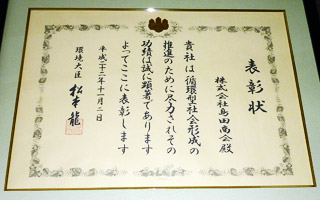 表彰状
株式会社島田商会殿
貴社は循環型社会形成の
推進のために尽力されその
功績は誠に顕著であります
よってここに表彰します
平成二十二年十一月二日
環境大臣 松本龍